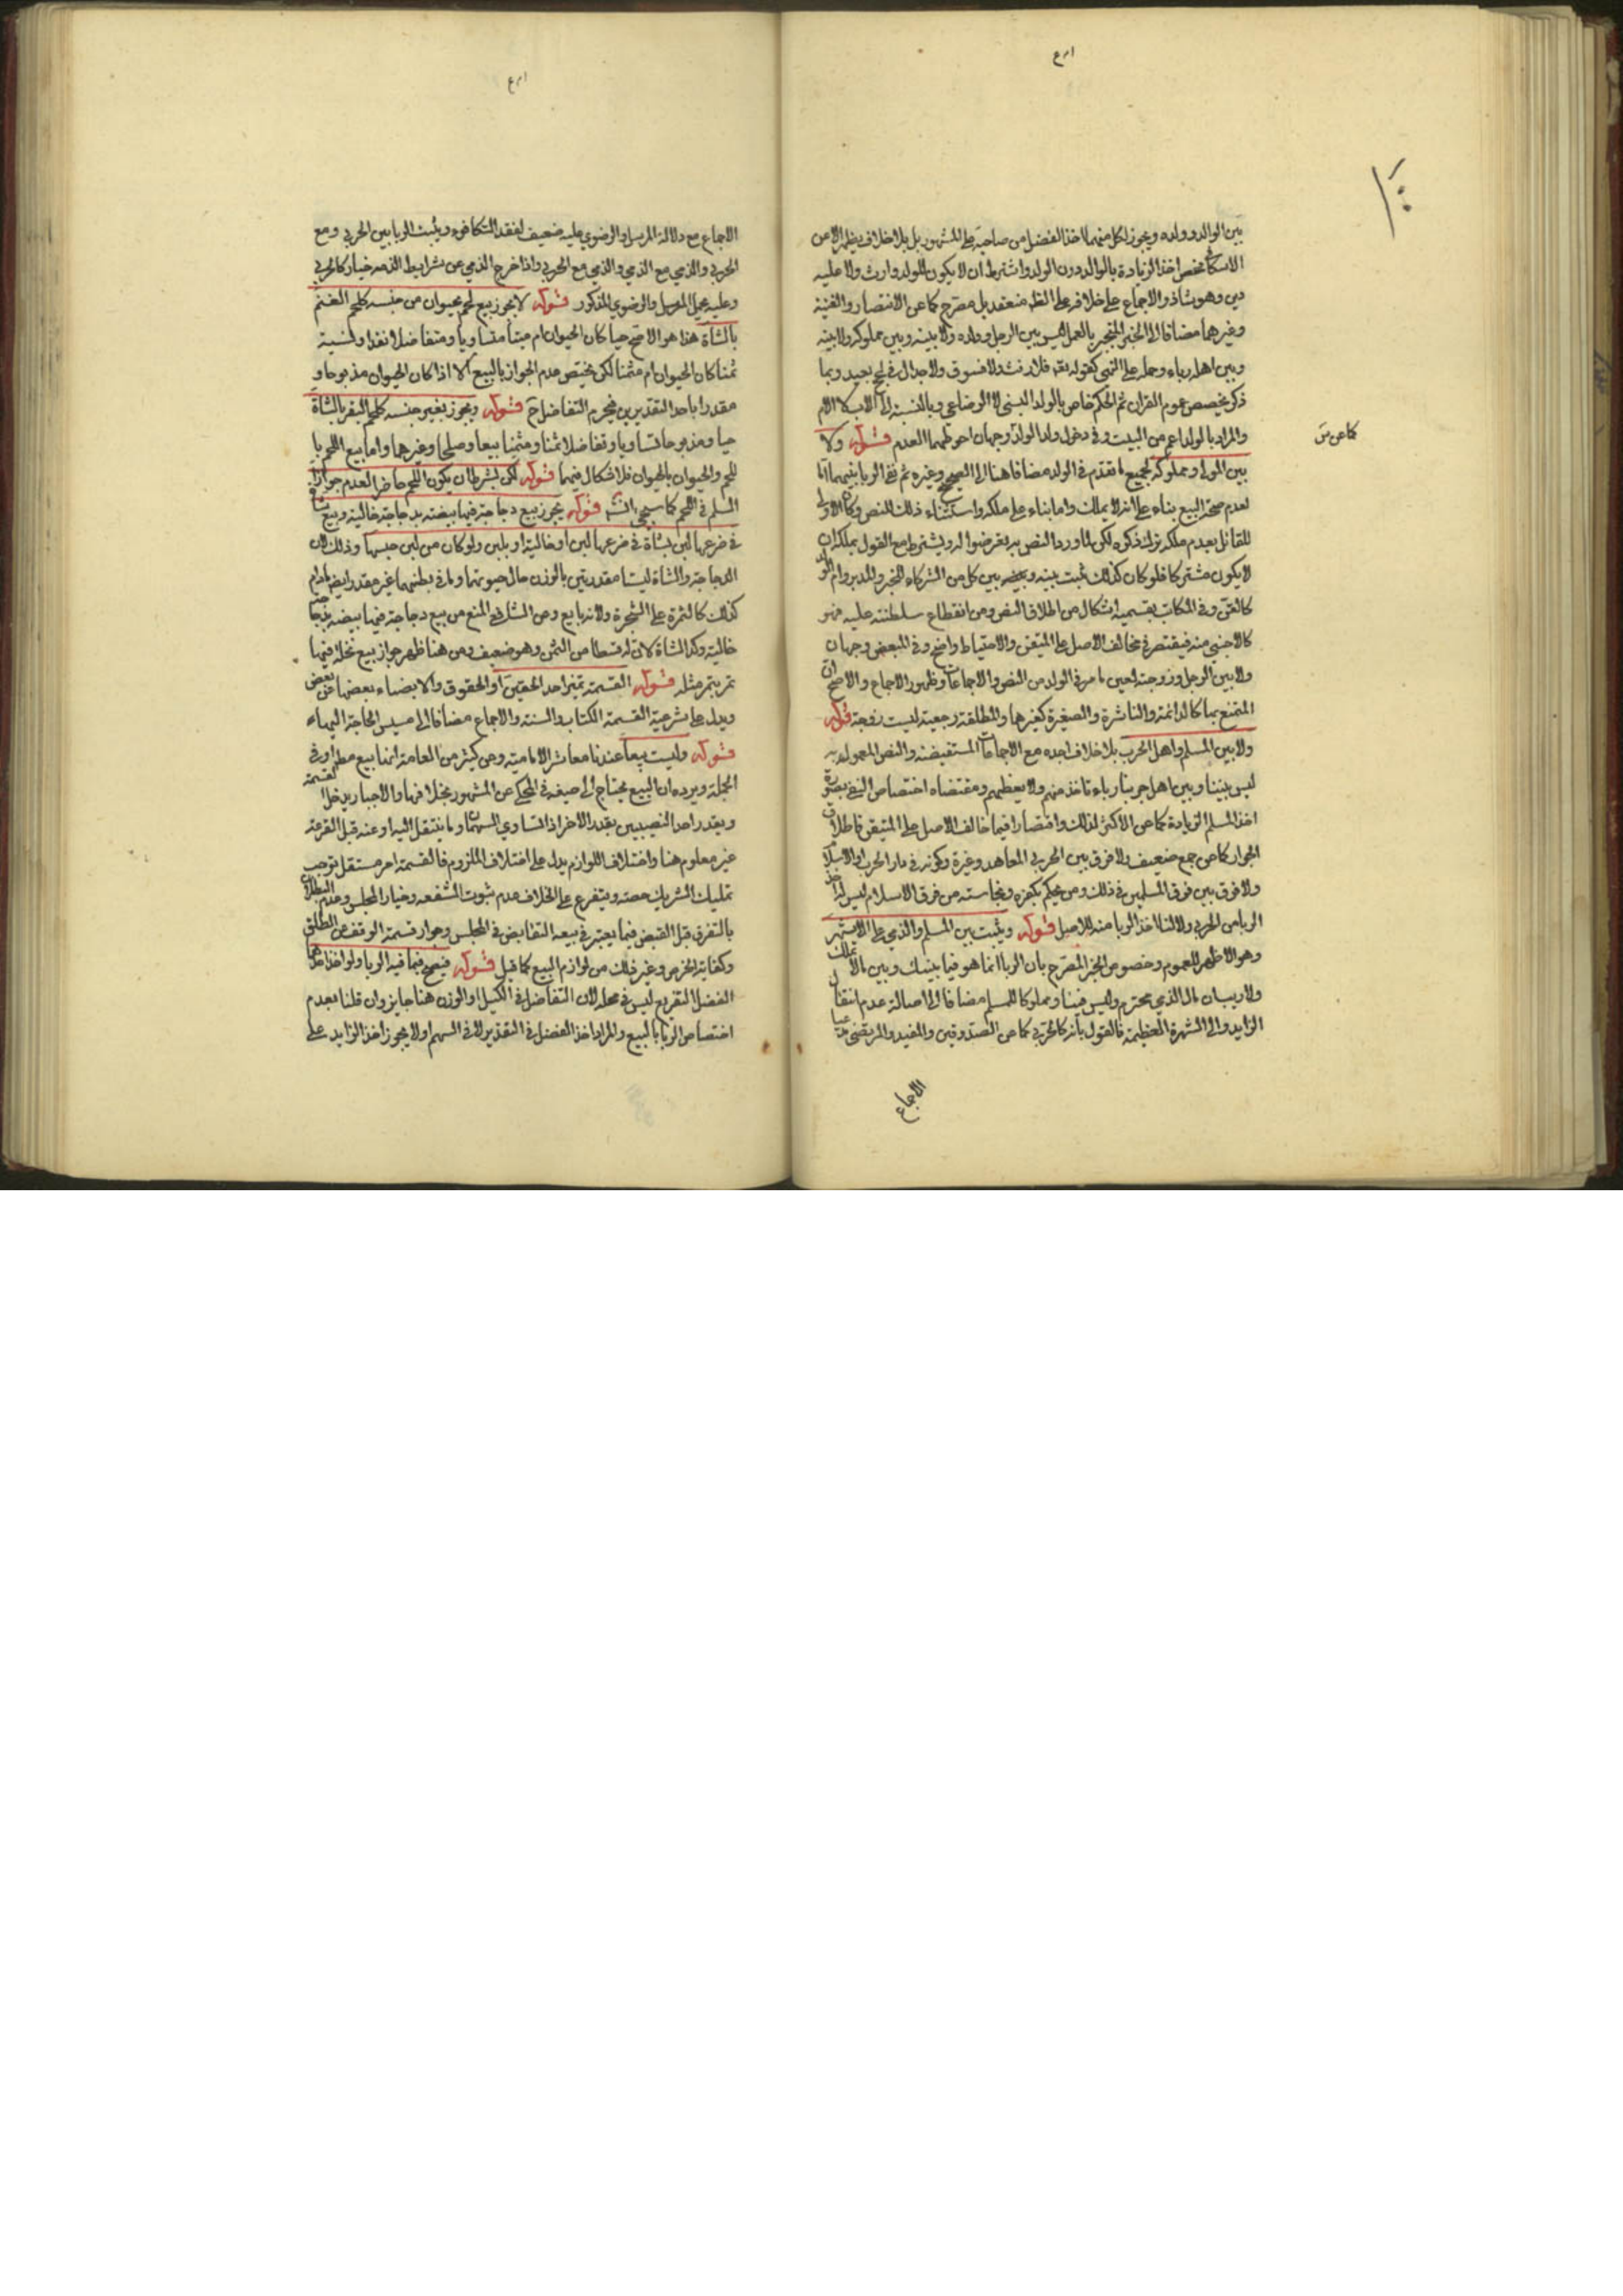 بين الوالد وولده ويجوز لكل منهما اخذ الفضل من صاحبه على المشهور بل بلا خلاف يظهر الا من
الاسكافي فخص اخذ الزيادة بالوالد دون الولد واشترط ان لا يكون للولد وارث ولا عليه
دين وهو شاذ والاجماع على خلافه على الظ منعقد بل مصرح كما عن الانتصار والغنية
وغيرهما مضافا الى الخبر المنجبر بالعمل ليس بين الرجل وولده ولا بينه وبين مملوكه ولا بينه
وبين اهله رباء وحمله على النهي كقوله تعه فلا رفث ولا فسوق ولا جدال في الحج بعيد وبما
ذكر يخصص عموم القران ثم الحكم خاص بالولد النسبي لا الرضاعي وبالنسبة الى الاب لا الام
والمراد بالولد اعم من البنت وفي دخول ولد الولد وجهان احوطهما العدم قوله ولا
كما عن س
بين المولى ومملوكه لجميع ما تقدم في الولد مضافا هنا الى الصحيح وغيره ثم نفي الربا بينهما اما
لعدم صحة البيع بناء على انه لا يملك واما بناء على ملكه واستثناء ذلك للنص وكان الاولى
للقائل بعدم ملكه ترك ذكره لكن لما ورد النص به تعرضوا له ويشترط مع القول بملكه ان
لا يكون مشتركا فلو كان كذلك ثبت بينه وبين كل من الشركاء لخبر والمدبر وام الولد
كالقن وفي المكاتب بقسميه اشكال من اطلاق النص ومن انقطاع سلطنته عليه فهو
كالاجنبي منه فيقتصر في مخالف الاصل على المتيقن والاحتياط واضح وفي المبعض وجهان
ولا بين الرجل وزوجته لعين ما مر في الولد من النص والاجماعات وظهور الاجماع والاصح ان
المتمتع بها كالدائمة والناشزة والصغيرة كغيرها والمطلقة رجعية ليست زوجة قوله
ولا بين المسلم واهل الحرب بلا خلاف اجده مع الاجماعات المستفيضة والنص المعمول به
ليس بيننا وبين اهل حربنا رباء ناخذ منهم ولا نعطيهم ومقتضاه اختصاص النفي بصورة
اخذ المسلم الزيادة كما عن الاكثر لذلك واقتصارا فيما خالف الاصل على المتيقن فاطلاق
الجواز كما عن جمع ضعيف ولا فرق بين الحربي المعاهد وغيره وكونه في دار الحرب او الاسلام
ولا فرق بين فرق المسلمين في ذلك ومن يحكم بكفره ونجاسته من فرق الاسلام ليس له اخذ
الربا من الحربي ولا لنا اخذ الربا منه للاصل قوله ويثبت بين المسلم والذمي على الاشهر
وهو الاظهر للعموم وخصوص الخبر المصرح بان الربا انما هو فيما بينك وبين ما لا تملك
ولا ريب ان مال الذمي محترم وليس فيئا ومملوكا للمسلم مضافا الى اصالة عدم انتقال
الزايد والى الشهرة العظيمة فالقول بانه كالحربي كما عن الصدوقين والمفيد والمرتضى مدعيا
الاجماع
الاجماع مع دلالة المرسل والرضوي عليه ضعيف لفقد التكافؤ ويثبت الربا بين الحربي ومع
الحربي والذمي مع الذمي والذمي مع الحربي واذا خرج الذمي عن شرايط الذمه فصار كالحربي
وعليه يحمل المرسل والرضوي المذكور قوله لا يجوز بيع لحم بحيوان من جنسه كلحم الغنم
بالشاة هذا هو الاصح حيا كان الحيوان ام ميتا متساويا ومتفاضلا نقدا ونسية
ثمنا كان الحيوان ام مثمنا لكن يختص عدم الجواز بالبيع الا اذا كان الحيوان مذبوحا و
مقدرا باحد التقديرين فيحرم التفاضل ح قوله ويجوز بغير جنسه كلحم البقر بالشاة
حيا ومذبوحا تساويا وتفاضلا ثمنا ومثمنا بيعا وصلحا وغيرهما واما بيع اللحم با
للحم والحيوان بالحيوان فلا اشكال فيهما قوله لكن بشرط ان يكون اللحم حاضرا لعدم جواز
السلم في اللحم كما سيجيء انشه قوله يجوز بيع دجاجة فيها بيضة بدجاجة خالية وبيع شاة
في ضرعها لبن بشاة في ضرعها لبن او خالية او بلبن ولو كان من لبن جنسها وذلك لان
الدجاجة والشاة ليستا مقدرتين بالوزن حال حيوتهما وما في بطنهما غير مقدر ايضا مادام
كذلك كالثمرة على الشجرة ولانه تابع وعن الشافعي المنع من بيع دجاجة فيها بيضة بدجاجة
خالية وكذا الشاة لان له قسطا من الثمن وهو ضعيف ومن هنا ظهر جواز بيع نخلة فيها
تمر بتمر مثله قوله القسمة تميز احد الحقين او الحقوق والانصباء بعضها عن بعض
ويدل على شرعية القسمة الكتاب والسنة والاجماع مضافا الى مسيس الحاجة اليها
قوله وليست بيعا عندنا معاشر الامامية وعن كثير من العامة انها بيع مطلقا او في
الجملة ويرده ان البيع يحتاج الى صيغة في المحكي عن المشهور بخلافها والاجبار يدخل القسمة
ويقدر احد النصيبين بقدر الاخر اذا تساوي السهمان وما ينتقل اليه او عنه قبل القرعة
غير معلوم هنا واختلاف اللوازم يدل على اختلاف الملزوم فالقسمة امر مستقل توجب
تمليك الشريك حصته ويتفرع على الخلاف عدم ثبوت الشفعه وخيار المجلس وعدم البطلان
بالتفرق قبل القبض فيما يعتبر في بيعه التقابض في المجلس وجواز قسمة الوقف من الطلق
وكفاية الخرص وغير ذلك من لوازم البيع كما قيل قوله فتصح فيما فيه الربا ولو اخذ احدهما
الفضل التفريع ليس في محله لان التفاضل في الكيل او الوزن هنا جايز وان قلنا بعدم
اختصاص الربا بالبيع والمراد اخذ الفضل في التقدير لا في السهم اولا يجوز اخذ الزايد على